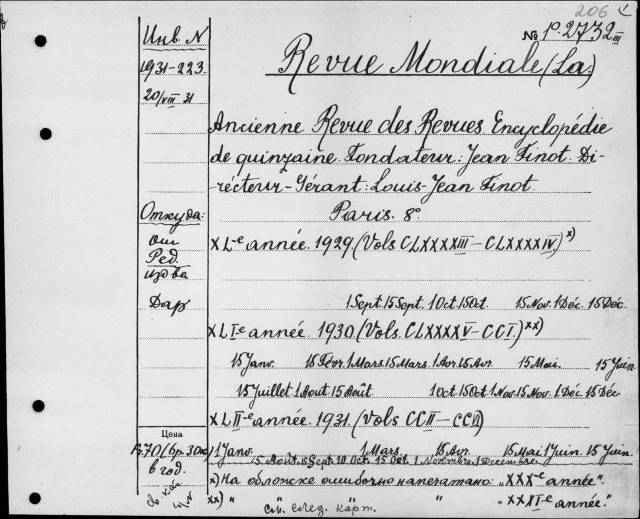 206
№ р. 2732 III
Инв. N
1931-223.
20/VIII 31
Revue Mondiale (La.)
Ancienne Revue des Revues. Encyclopédie
de quinzaine. Fondateur: Jean Finot. Di-
récteur-Gérant: Louis-Jean Finot.
Откуда:
Paris. 8°
от
Ред.
изд-ва
Дар
X L-e année. 1929. (Vols CLXXXXIII — CLXXXXIV.) x)
1 Sept. 15 Sept. 1 Oct. 15 Oct. 15 Nov. 1 Déc. 15 Déc.
X LI e année. 1930. (Vols. CLXXXXV — CCI.) xx)
15 Janv. 15 Févr. 1 Mars. 15 Mars. 1 Avr. 15 Avr. 15 Mai. 15 Juin
15 Juillet. 1 Aout. 15 Août. 10ct 15 Oct. 1 Nov. 15 Nov. 1 Déc. 15 Déc
X LII-e année. 1931. (Vols CCII — CCVI)
Цена
70 (6р. 30к)
в год.
1 Janv. 1 Mars. 15 Avr. 15 Mai. 1 Juin. 15 Juin.
15 Août. 15 Sept. 10 Oct. 15 Oct. 1 Novembre. 1 Decembre
x) На обложке ошибочно напечатано: "XXX-e année".
xx) " " " "XXXI-e année".
См. след. карт.